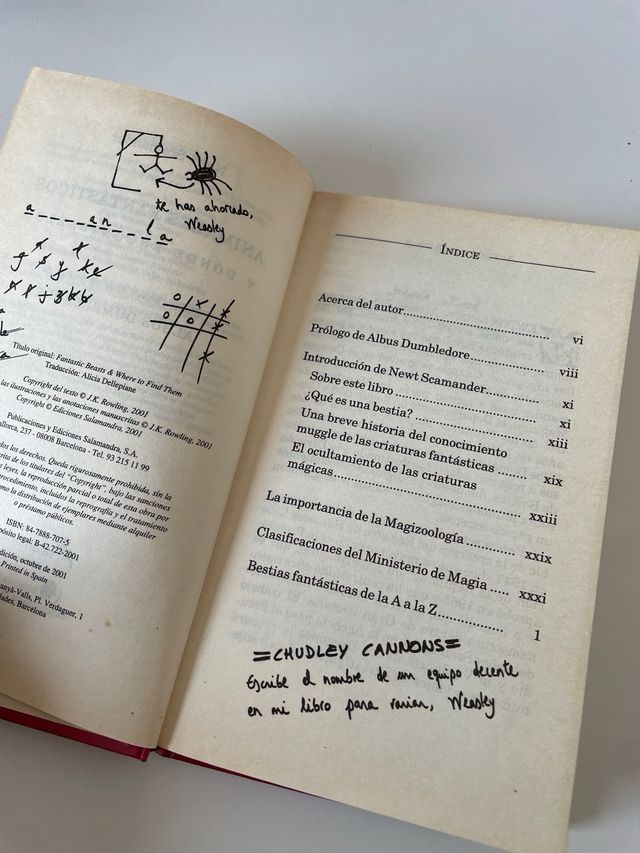 te has ahorcado,
Weasley
a _ _ _ _ an _ _ _ l a
Título original: Fantastic Beasts & Where to Find Them
Traducción: Alicia Dellepiane
Copyright del texto © J.K. Rowling, 2001
las ilustraciones y las anotaciones manuscritas © J.K. Rowling, 2001
Copyright © Ediciones Salamandra, 2001
Publicaciones y Ediciones Salamandra, S.A.
237 - 08008 Barcelona - Tel. 93 215 11 99
los derechos. Queda rigurosamente prohibida, sin la
de los titulares del "Copyright", bajo las sanciones
leyes, la reproducción parcial o total de esta obra por
procedimiento, incluidos la reprografía y el tratamiento
la distribución de ejemplares mediante alquiler
o préstamo públicos.
ISBN: 84-7888-707-5
legal: B-42.722-2001
octubre de 2001
Printed in Spain
Pl. Verdaguer, 1
Barcelona
ÍNDICE
Acerca del autor vi
Prólogo de Albus Dumbledore viii
Introducción de Newt Scamander xi
Sobre este libro xi
¿Qué es una bestia? xiii
Una breve historia del conocimiento
muggle de las criaturas fantásticas xix
El ocultamiento de las criaturas
mágicas xxiii
La importancia de la Magizoología xxix
Clasificaciones del Ministerio de Magia xxxi
Bestias fantásticas de la A a la Z 1
=CHUDLEY CANNONS=
Escribe el nombre de un equipo decente
en mi libro para variar, Weasley